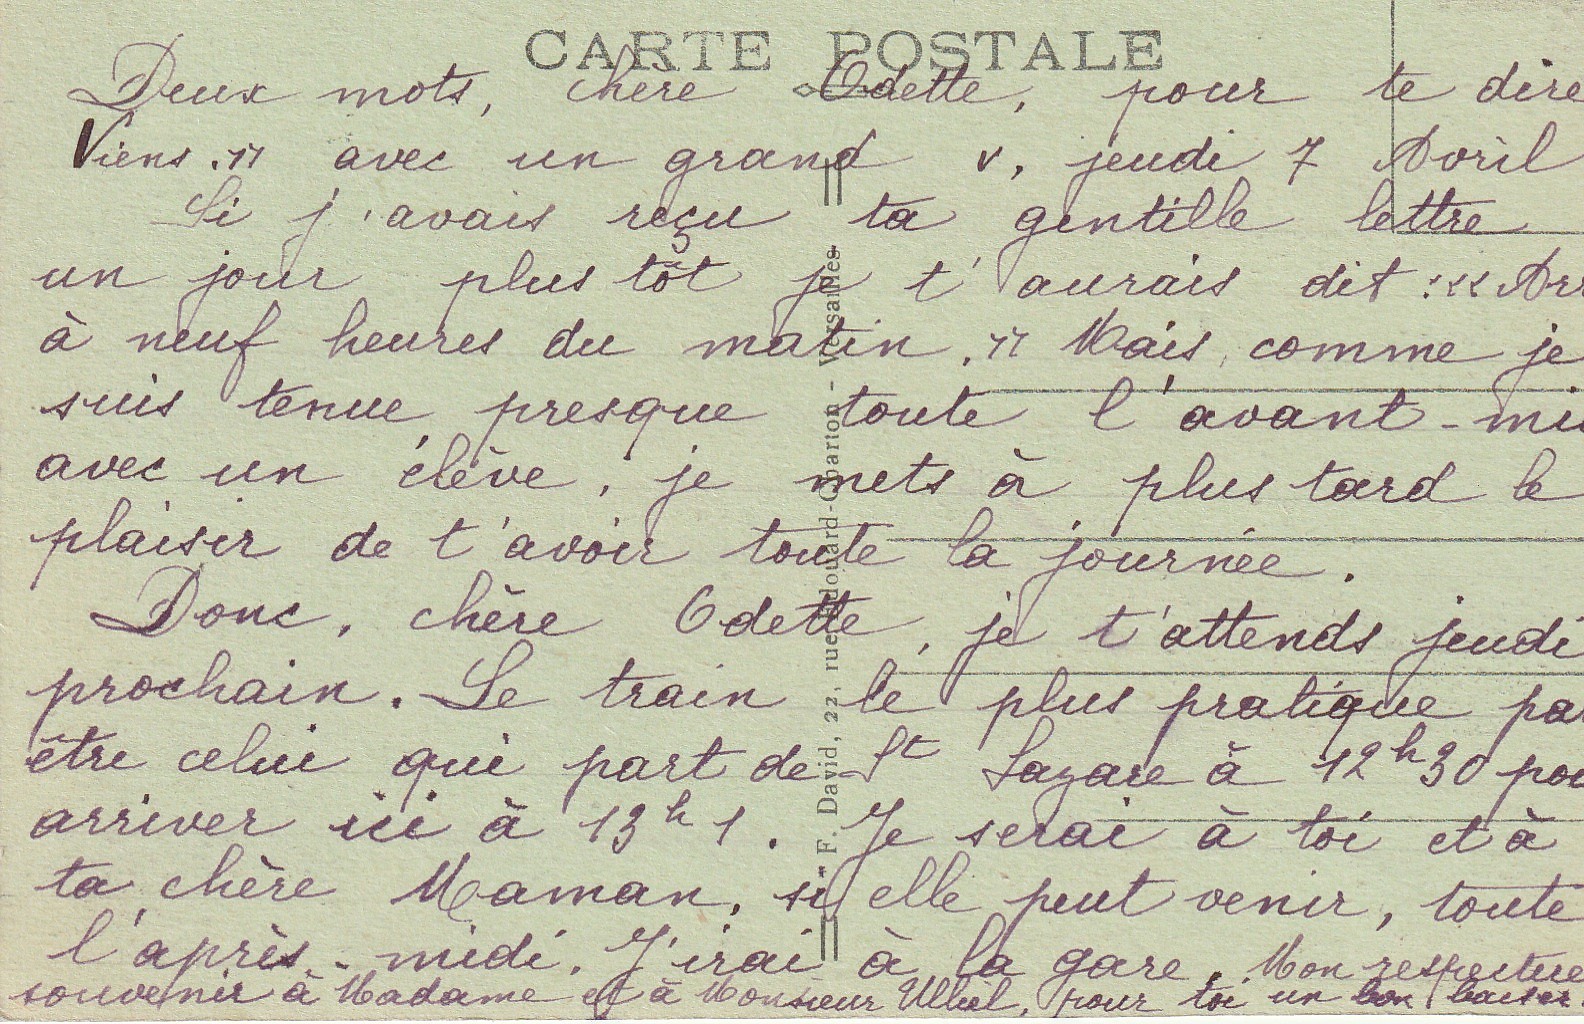 CARTE POSTALE
Deux mots, chère Odette, pour te dire
Viens." avec un grand v, jeudi 7 Avril
Si j'avais reçu ta gentille lettre
un jour plus tôt je t'aurais dit : « Arr
à neuf heures du matin." Mais comme je
suis tenue presque toute l'avant-mi
avec un élève, je mets à plus tard le
plaisir de t'avoir toute la journée.
Donc, chère Odette, je t'attends jeudi
prochain. Le train le plus pratique par
être celui qui part de St Lazare à 12h30 pou
arriver ici à 13h1. Je serai à toi et à
ta chère Maman, si elle peut venir, toute
l'après-midi. J'irai à la gare. Mon respectue
souvenir à Madame et à Monsieur pour toi un bon baiser.
F. David, 22, rue Edouard-Charton - Versailles